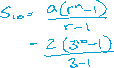 S₁₀ = a(rⁿ-1)/r-1
= 2(3¹⁰-1)/3-1